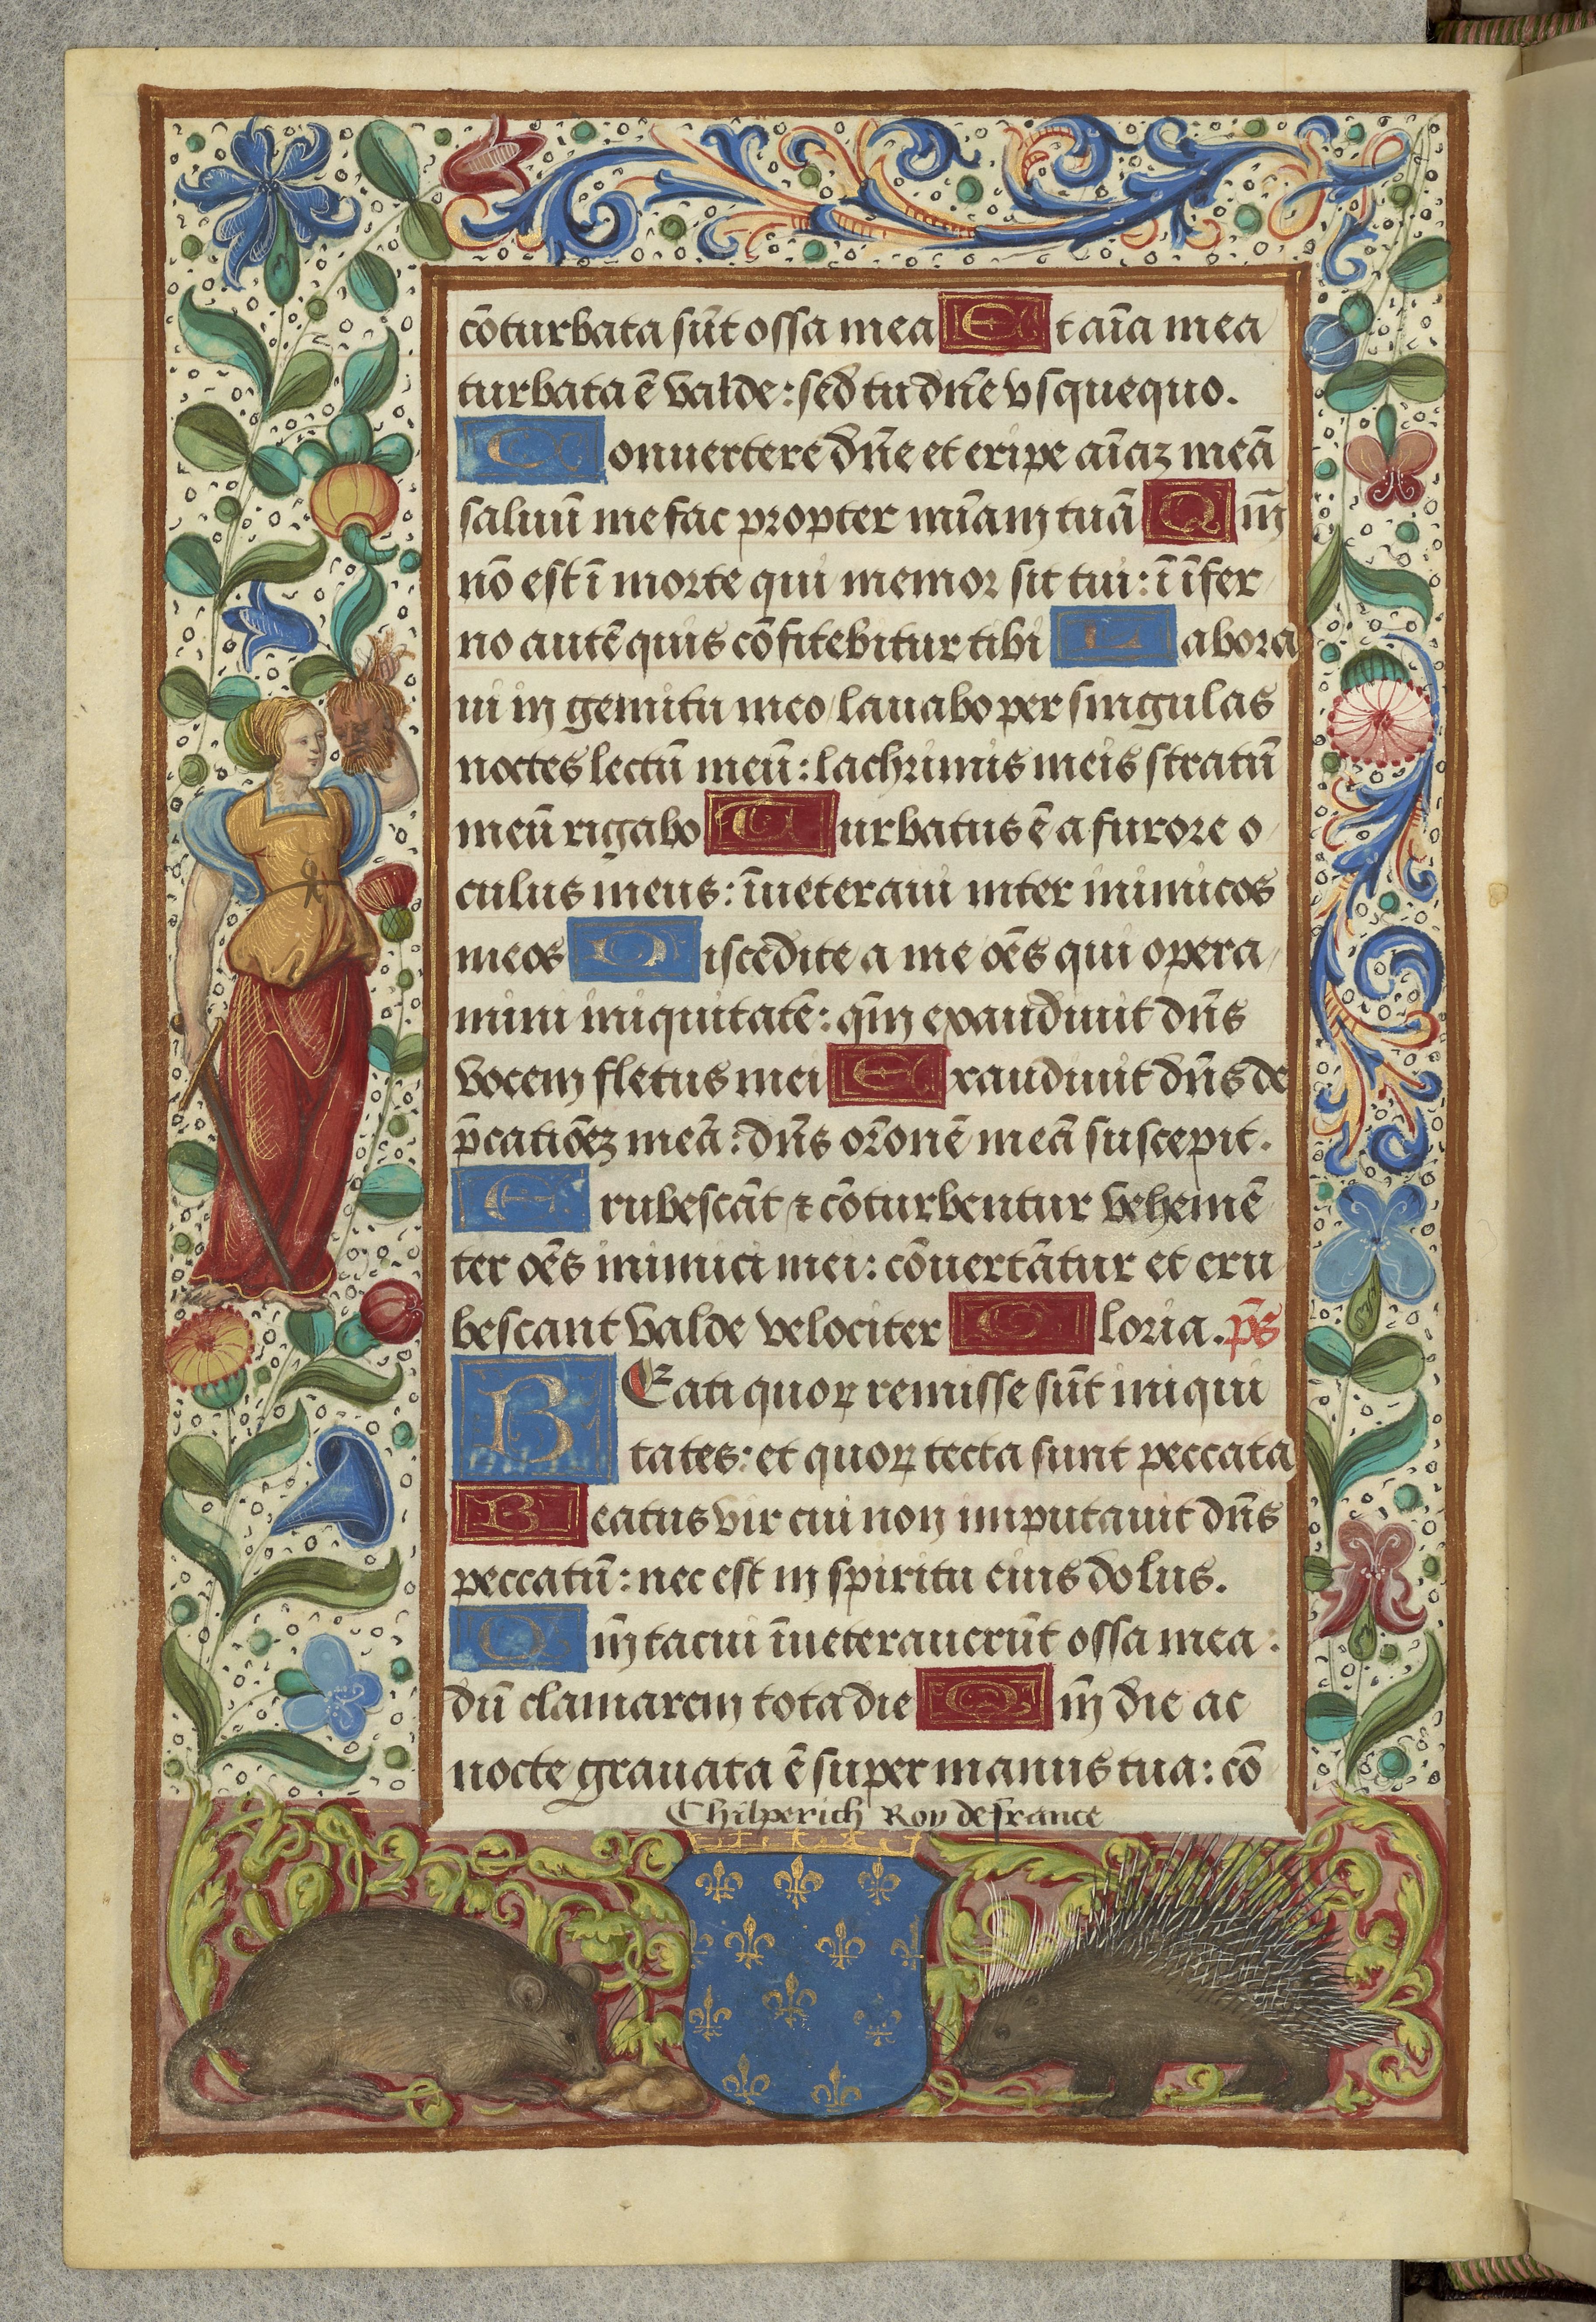 cōturbata sūt ossa mea Et aīa mea
turbata ē valde: sed tu dn̄e vsquequo.
Conuertere dn̄e et eripe aīaz meā
saluū me fac propter mīam tuā Qm̄
nō est ī morte qui memor sit tui: ī īfer
no autē quis cōfitebitur tibi Labora
ui in gemitu meo lauabo per singulas
noctes lectū meū: lachrimis meis stratū
meū rigabo Turbatus ē a furore o
culus meus: īueteraui inter inimicos
meos Discedite a me oēs qui opera
mini iniquitatē: qm̄ exaudiuit dn̄s
vocem fletus mei Exaudiuit dn̄s de
p̄catiōez meā: dn̄s orōnē meā suscepit.
Erubescāt ⁊ cōturbentur vehemē
ter oēs inimici mei: cōuertātur et eru
bescant valde velociter Gloria. ps̄
BEati quoꝝ remisse sūt iniqui
tates: et quoꝝ tecta sunt peccata
Beatus vir cui non imputauit dn̄s
peccatū: nec est in spiritu eius dolus.
Qm̄ tacui īueterauerūt ossa mea:
dū clamarem tota die Qm̄ die ac
nocte grauata ē super manus tua: cō
Chilperich Roy de france